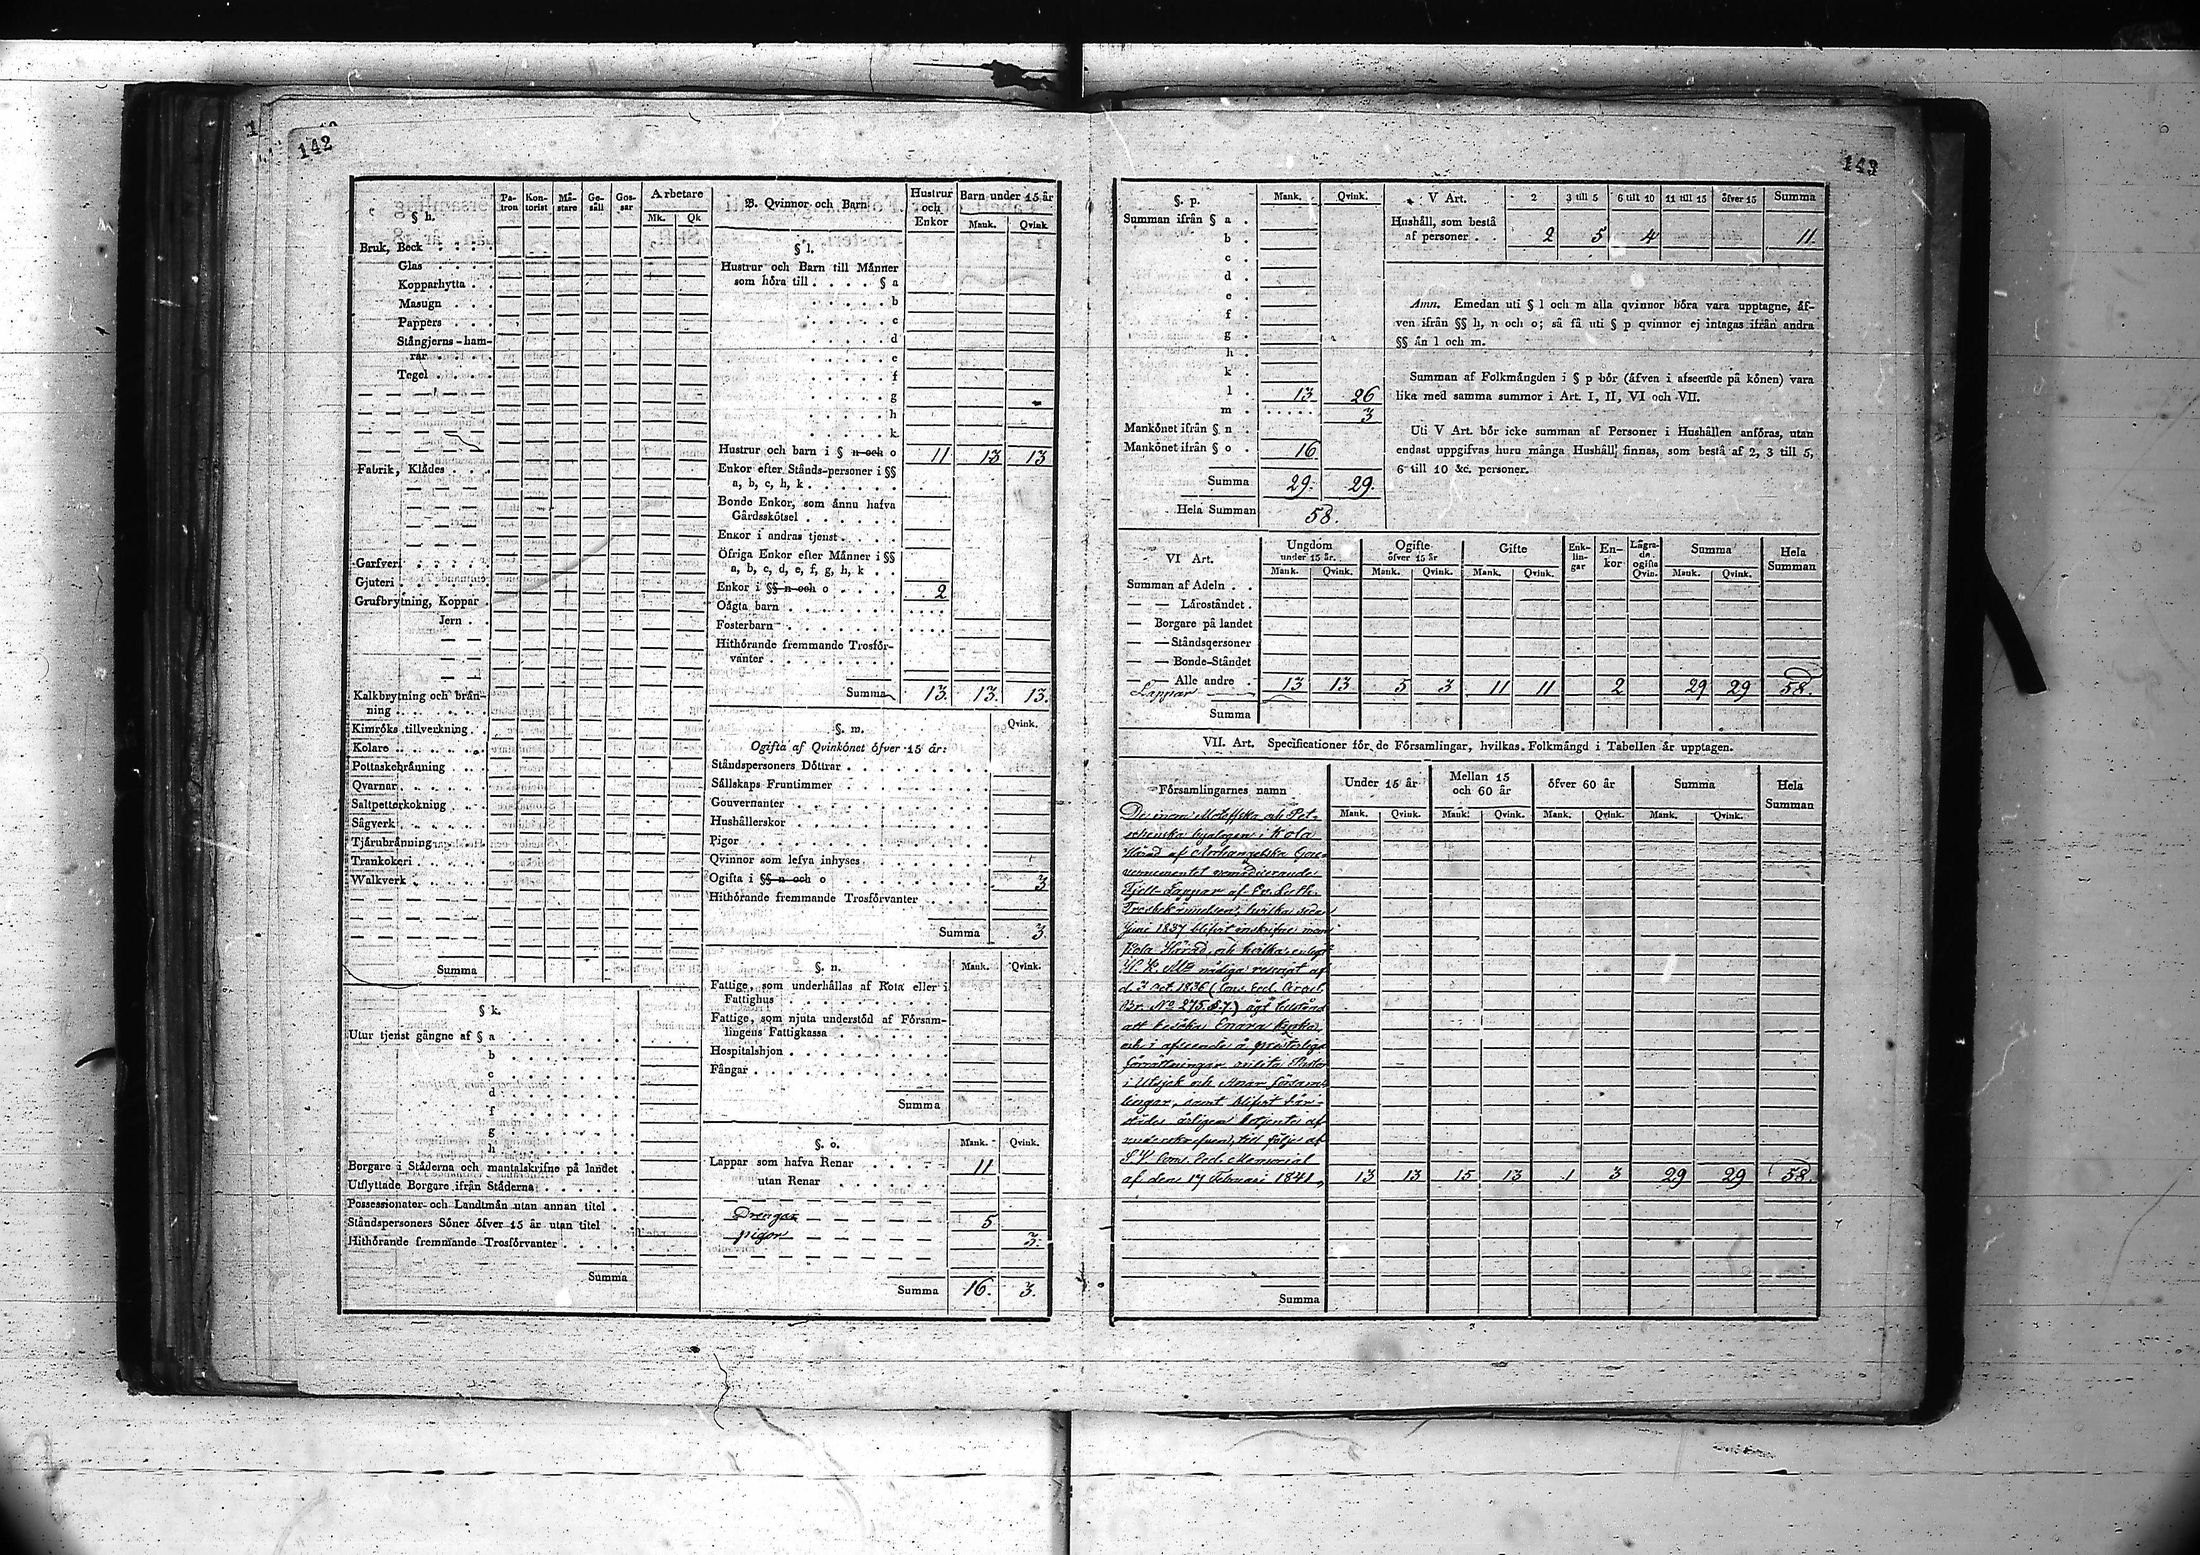 142
§ h.
Pa-tron Kon-torist Mä-stare Ge-säll Gos-sar Arbetare
Mk. Qk
Bruk, Beck . . .
Glas . . . .
Kopparhytta . .
Masugn . . .
Pappers . . .
Stångjerns-ham-
rar . . . .
Tegel . . . .
Fabrik, Klådes . . .
Garfveri . . . . .
Gjuteri . . . . .
Grufbrytning, Koppar .
Jern . .
Kalkbrytning och brän-
ning . . . . . .
Kimröks tillverkning .
Kolare . . . . . .
Pottaskebränning . . .
Qvarnar . . . . .
Saltpetterkokning . . .
Sågverk . . . . . .
Tjärubränning . . . .
Trankokeri . . . . .
Walkverk . . . . .
Summa
§ k.
Utur tjenst gångne af § a . . . . . . .
b . . . . . . .
c . . . . . . .
d . . . . . . .
f . . . . . . .
g . . . . . . .
h . . . . . . .
Borgare i Städerna och mantalskrifne på landet .
Utflyttade Borgare ifrån Städerna . . . . .
Possessionater och Landtmän utan annan titel .
Ståndspersoners Söner öfver 15 år utan titel . .
Hithörande fremmande Trosförvanter . . . .
Summa
B. Qvinnor och Barn
Hustrur och Enkor Barn under 15 år
Mank. Qvink
§ l.
Hustrur och Barn till Männer
som höra till . . . . § a
. . . . . b
. . . . . c
. . . . . d
. . . . . e
. . . . . f
. . . . . g
. . . . . h
. . . . . k
Hustrur och barn i § n och o 11 13 13
Enkor efter Stånds-personer i §§
a, b, c, h, k . . . . . .
Bonde Enkor, som ännu hafva
Gårdsskötsel . . . . . .
Enkor i andras tjenst . . . .
Öfriga Enkor efter Männer i §§
a, b, c, d, e, f, g, h, k . .
Enkor i §§ n och o . . . . 2
Oägta barn . . . . . . .
Fosterbarn . . . . . . .
Hithörande fremmande Trosför-
vanter . . . . . . . .
Summa 13. 13. 13.
§. m. Qvink.
Ogifta af Qvinkönet öfver 15 år:
Ståndspersoners Döttrar . . . . . . . .
Sällskaps Fruntimmer . . . . . . . .
Gouvernanter . . . . . . . . . . .
Hushållerskor . . . . . . . . . . .
Pigor . . . . . . . . . . . . .
Qvinnor som lefva inhyses . . . . . . .
Ogifta i §§ n och o . . . . . . . . . 3
Hithörande fremmande Trosförvanter . . . .
Summa 3.
§. n. Mank. Qvink.
Fattige, som underhållas af Rota eller i
Fattighus . . . . . . . . .
Fattige, som njuta understöd af Försam-
lingens Fattigkassa . . . . . .
Hospitalshjon . . . . . . . . .
Fångar . . . . . . . . . . .
Summa
§. o. Mank. Qvink.
Lappar som hafva Renar . . . . 11
utan Renar . . . . .
Drengar 5
pigor 3.
Summa 16. 3.
143
§. p. Mank. Qvink.
Summan ifrån § a .
b .
c .
d .
e .
f .
g .
h .
k .
l . 13 26
m . . . . . . 3
Mankönet ifrån § n .
Mankönet ifrån § o . 16
Summa 29. 29.
Hela Summan 58.
V Art. 2 3 till 5 6 till 10 11 till 15 öfver 15 Summa
Hushåll, som bestå
af personer . . 2 5 4 11.
Anm. Emedan uti § l och m alla qvinnor böra vara upptagne, äf-
ven ifrån §§ h, n och o; så få uti § p qvinnor ej intagas ifrån andra
§§ än l och m.
Summan af Folkmängden i § p bör (äfven i afseende på könen) vara
lika med samma summor i Art. I, II, VI och VII.
Uti V Art. bör icke summan af Personer i Hushållen anföras, utan
endast uppgifvas huru många Hushåll finnas, som bestå af 2, 3 till 5,
6 till 10 &c. personer.
VI Art. Ungdom under 15 år. Ogifte öfver 15 år Gifte Enk-lin-gar En-kor Lägra-de ogifta Qvin. Summa Hela Summan
Mank. Qvink. Mank. Qvink. Mank. Qvink. Mank. Qvink.
Summan af Adeln . .
— — Läroståndet .
— Borgare på landet
— — Ståndspersoner
— — Bonde-Ståndet
— — Alle andre .
Lappar 13 13 5 3 11 11 2 29 29 58.
Summa
VII. Art. Specificationer för de Församlingar, hvilkas Folkmängd i Tabellen är upptagen.
Församlingarnes namn Under 15 år Mellan 15 och 60 år öfver 60 år Summa Hela Summan
Mank. Qvink. Mank. Qvink. Mank. Qvink. Mank. Qvink.
De inom Motoffska och Pet-
schenska byalagen i Kola
Härad af Archangelska Gou-
vernementet nomadiserande
Fjell-Lappar af Ev. Luth.
Trosbekännelsen, hvilka sedan
Juni 1837 blifvit inskrifne inom
Kola Härad, och hvilka enligt
H. K. M:ts nådiga rescript af
d. 3 Oct. 1836 (Cons. Eccl. Circul.
Br. No 275. § 7.) ägt tillstånd
att besöka Enara kyrka,
och i afseende å presterliga
förrättningar anlita Pastor
i Utsjok och Enare försam-
lingar, samt blifvit för-
stådes årligen betjente af
underskrefven, till följe af
V. Cons. Eccl. Memorial
af den 17 Februari 1841, 13 13 15 13 1 3 29 29 58.
Summa